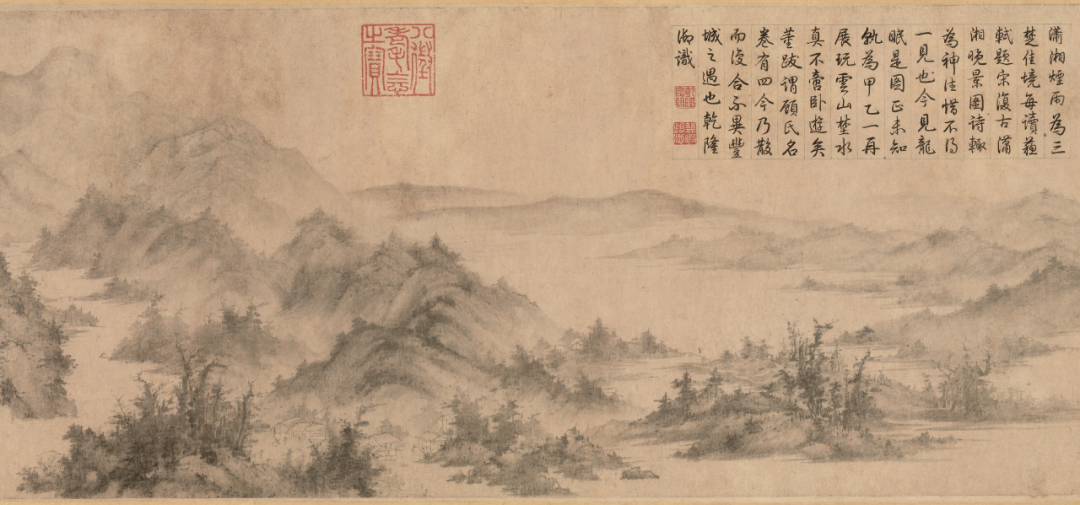 瀟湘煙雨為三
楚佳境每讀蘇
軾題宋復古瀟
湘晚景圖詩輙
為神往惜不得
一見也今見龍
眠是圖正未知
孰為甲乙一再
展玩雲山埜水
真不啻卧遊矣
董跋謂顧氏名
卷有四今乃散
而復合不異豐
城之遇也乾隆
御識
八徵
耄念
之寶